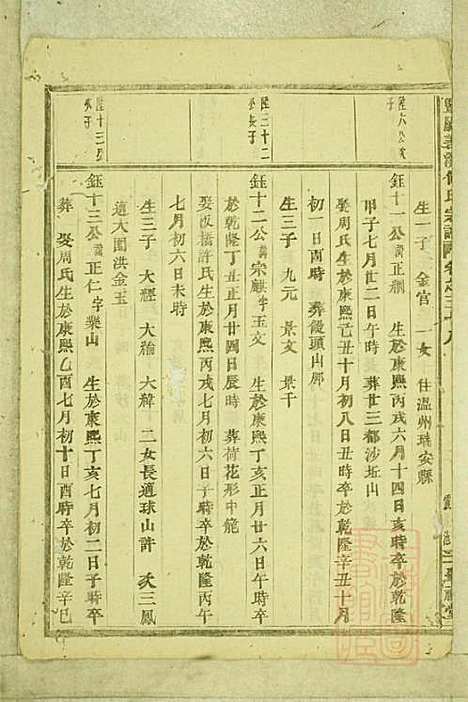 生一子 金官 一女 住溫州瑞安縣
鈺十一公 諱正 生於康熙丙戌六月十四日亥時卒於乾隆
甲子七月廿二日午時 葬廿三都沙坵山
娶周氏生於康熙己丑十月初八日丑時卒於乾隆辛丑十月
初一日酉時 葬饅頭山
生三子 九元 景文 景千
鈺十二公 諱宗麒字玉文 生於康熙丁亥正月廿六日午時卒
於乾隆丁丑正月廿四日辰時 葬荷花形中
娶板橋許氏生於康熙丙戌七月初六日子時卒於乾隆丙午
七月初六日未時
生三子 大經 大 大緯 二女長適球山許 次三鳳
適大園洪金玉
鈺十三公 諱正仁字樂山 生於康熙丁亥七月初二日子時卒
葬 娶周氏生於康熙乙酉七月初十日酉時卒於乾隆辛巳